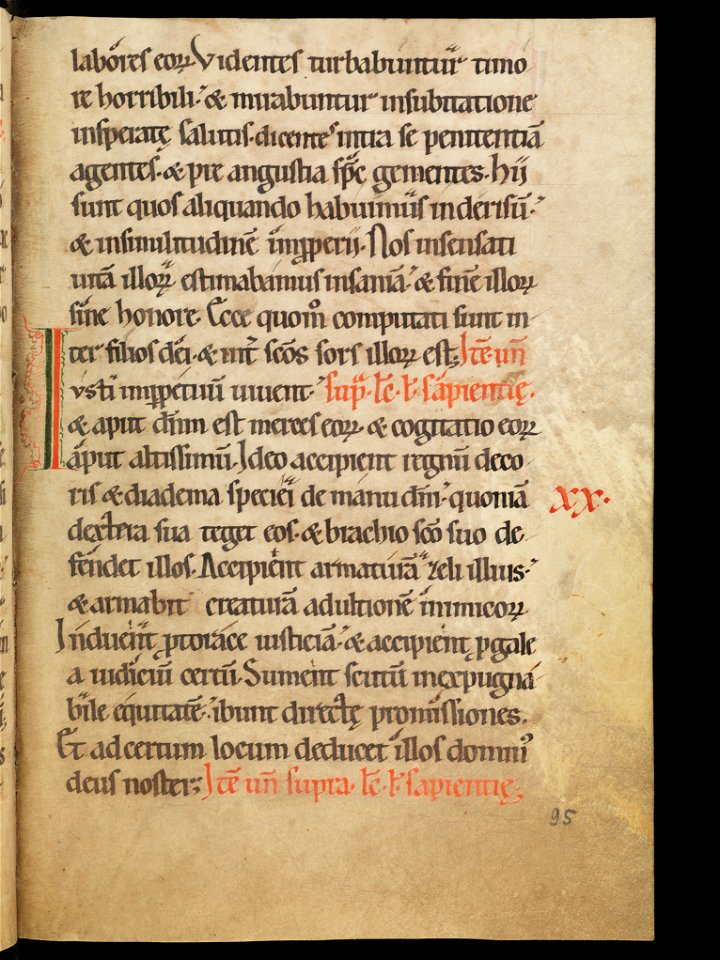 labores eoꝝ Videntes turbabuntur timo
re horribili· & mirabuntur insubitatione
insperatę salutis· dicentes intra se penitentiā
agentes· & pre angustia spc̄ gementes· hii
sunt quos aliquando habuimus inderisū·
& insimilitudinē imꝓperii· Nos insensati
uitā illoꝝ estimabamus insaniā· & finē illoꝝ
sine honore· Ecce quom̄ computati sunt in
ter filios dei· & int̄ sc̄os sors illoꝝ est; Itē un̄
Iusti imꝑpetuū uiuent· sup̄· lc̄· l· sapientię·
& aput dn̄m est merces eoꝝ· & cogitatio eoꝝ
aput altissimū· Ideo accipient regnū deco
ris & diadema speciei de manu dn̄i· quoniā
dextera sua teget eos· & brachio sc̄o suo de-
fendet illos· Accipient armaturā zeli illius·
& armabit creaturā adultionē inimicoꝝ
Induent ꝓtorace iusticiā· & accipient ꝓgale
a iudiciū certū· Sument scutū inexpugna-
bile equitatē· ibunt directę promissiones·
Et ad certum locum deducet illos domin᷒
deus noster; Itē un̄ supra· lc̄· l· sapientię;
xx·
95